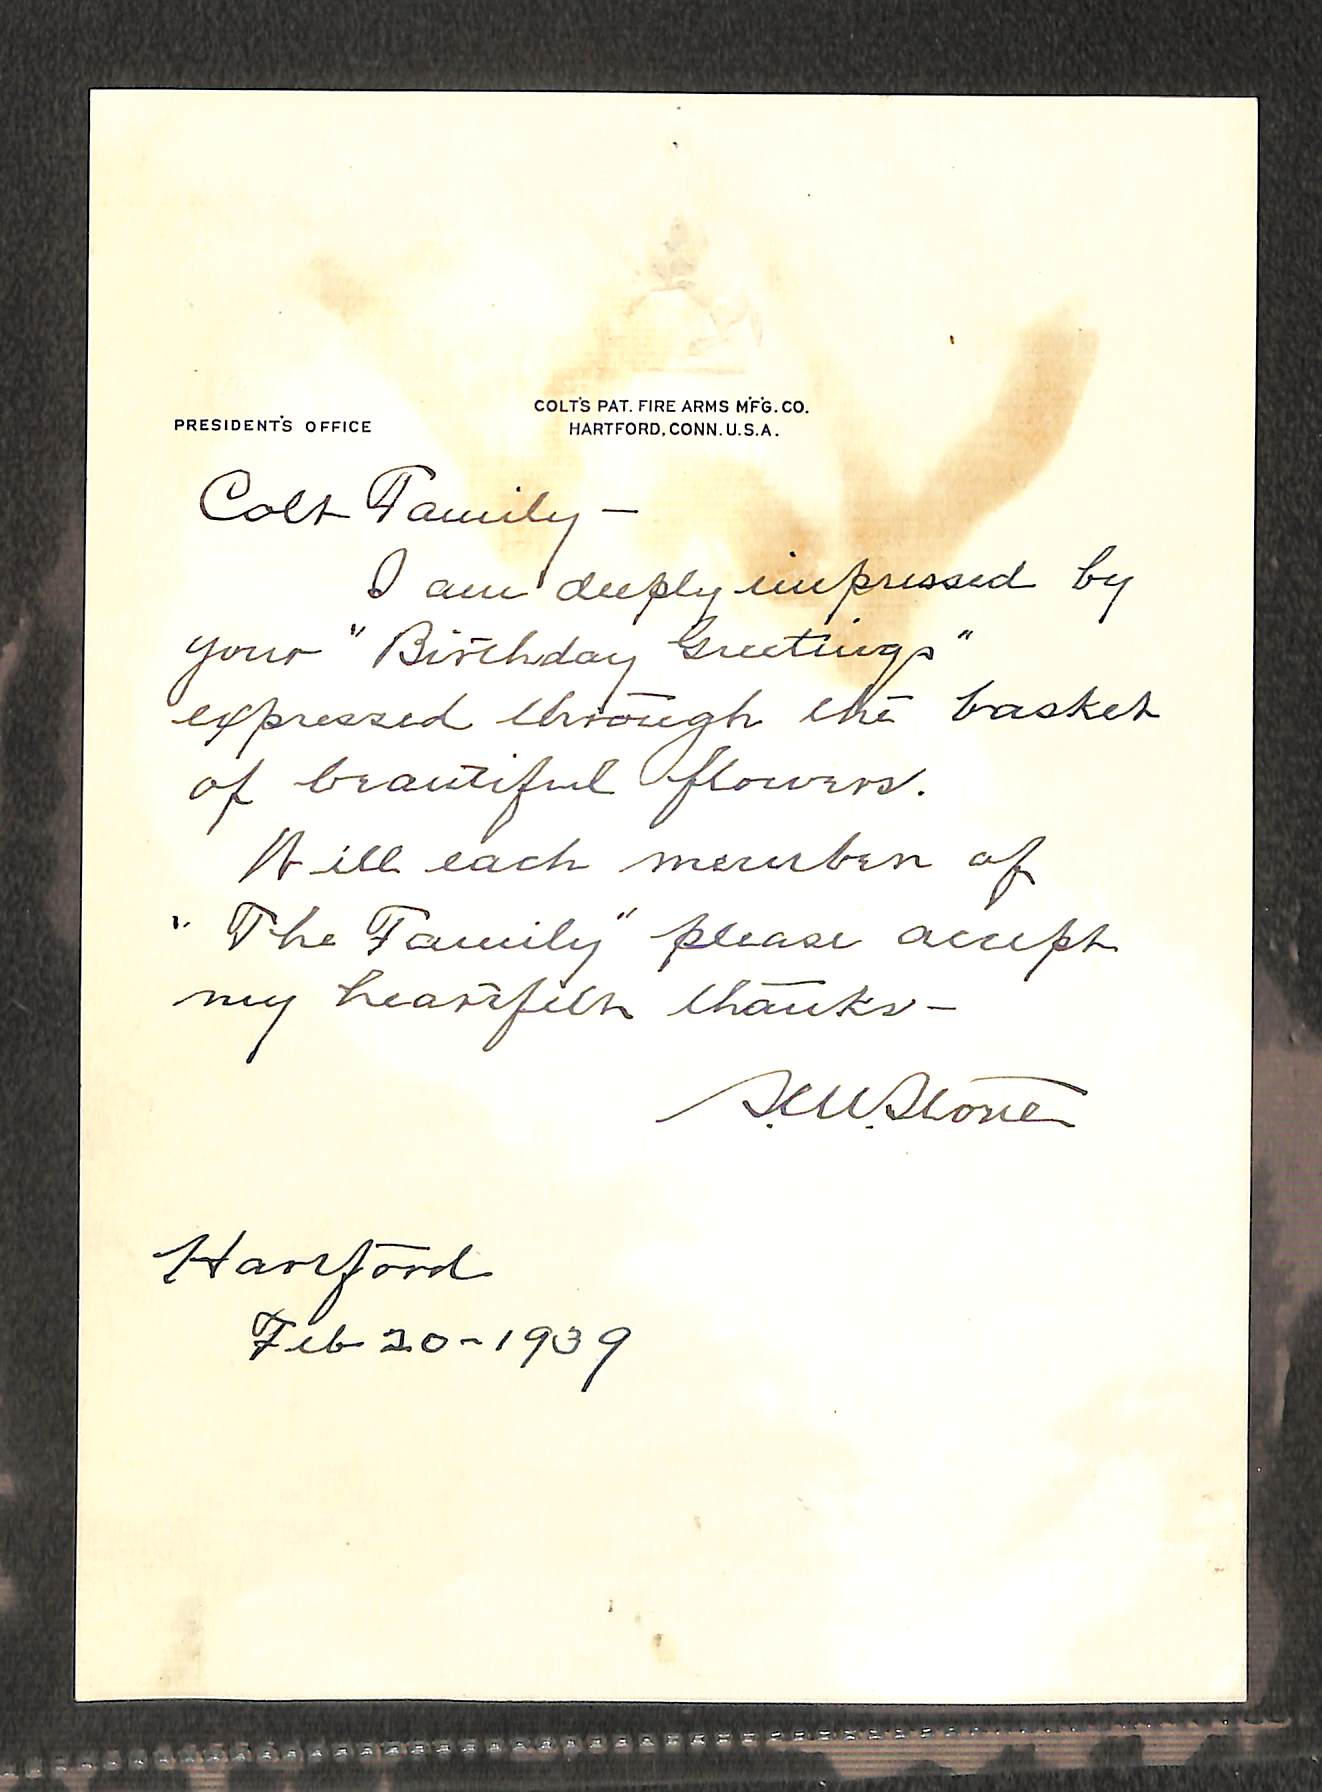 COLT'S PAT. FIRE ARMS M'F'G. CO.
PRESIDENT'S OFFICE
HARTFORD, CONN. U.S.A.
Colt Family –
I am deeply impressed by
your "Birthday Greetings"
expressed through the basket
of beautiful flowers.
Will each member of
"The Family" please accept
my heartfelt thanks –
S.M. Stone
Hartford
Feb 20 - 1939